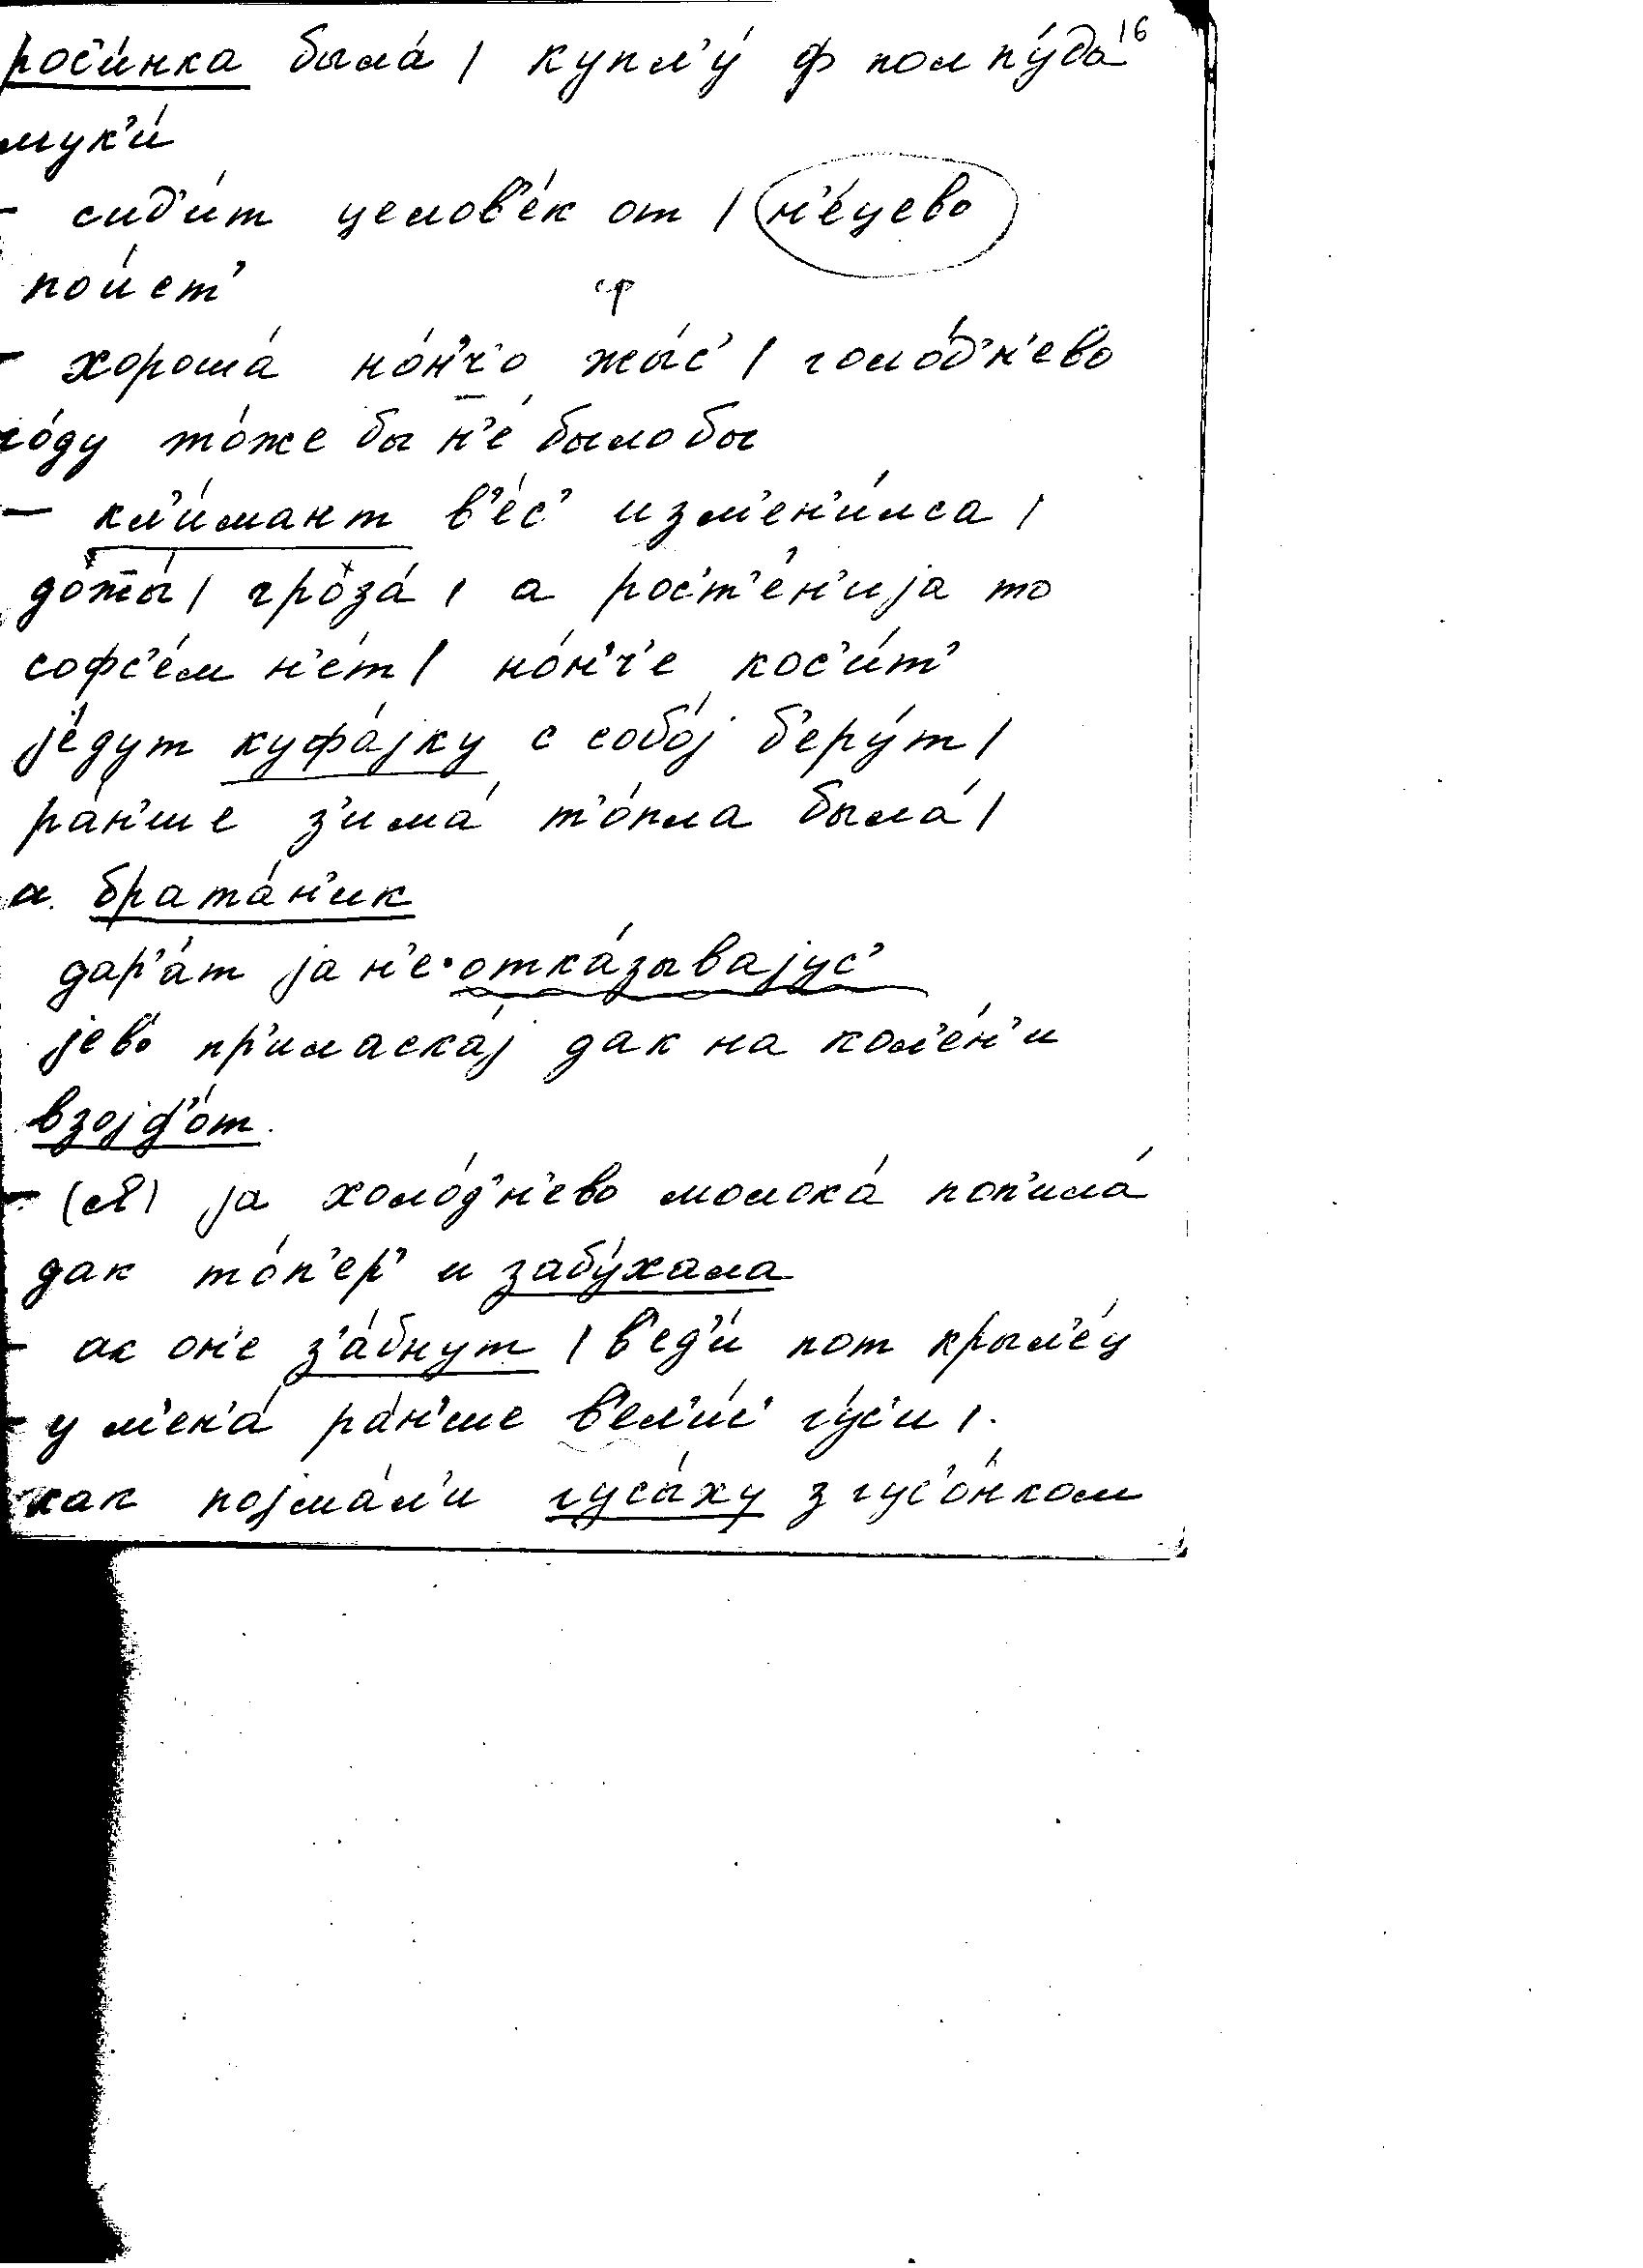 16
рос'и́нка была́ | купл'у́ ф пол пу́да
мук'и́
- сид'и́т целов'е́к от | н'е́цево
пои́ст'
ср
- хороша́ но́н'ч'о жы́с' | голо́д'н'ево
го́ду то́же бы н'е́ было бы
- кл'и́мант в'е́с' изм'ен'и́лса |
дожжы́ | гроза́ | а рост'е́н'иjа то
софс'е́м н'е́т | но́н'ч'е кос'и́т'
jе́дут куфа́jку с собо́j б'еру́т |
ра́н'ше з'има́ т'о́пла была́ |
а брата́н'ик
дар'а́т jа н'е отка́зываjус'
jево́ пр'иласка́j дак на кол'е́н'и
взоjд'о́т
- (Я) jа холо́д'н'ево молока́ поп'ила́
дак то́п'ер' и забу́хала
- ак он'е з'а́бнут | в'ед'и́ пот крыл'е́ц
- у м'ен'а́ ра́н'ше в'ел'и́с' гу́с'и |
как поjма́л'и гусы́ху з гус'о́нком